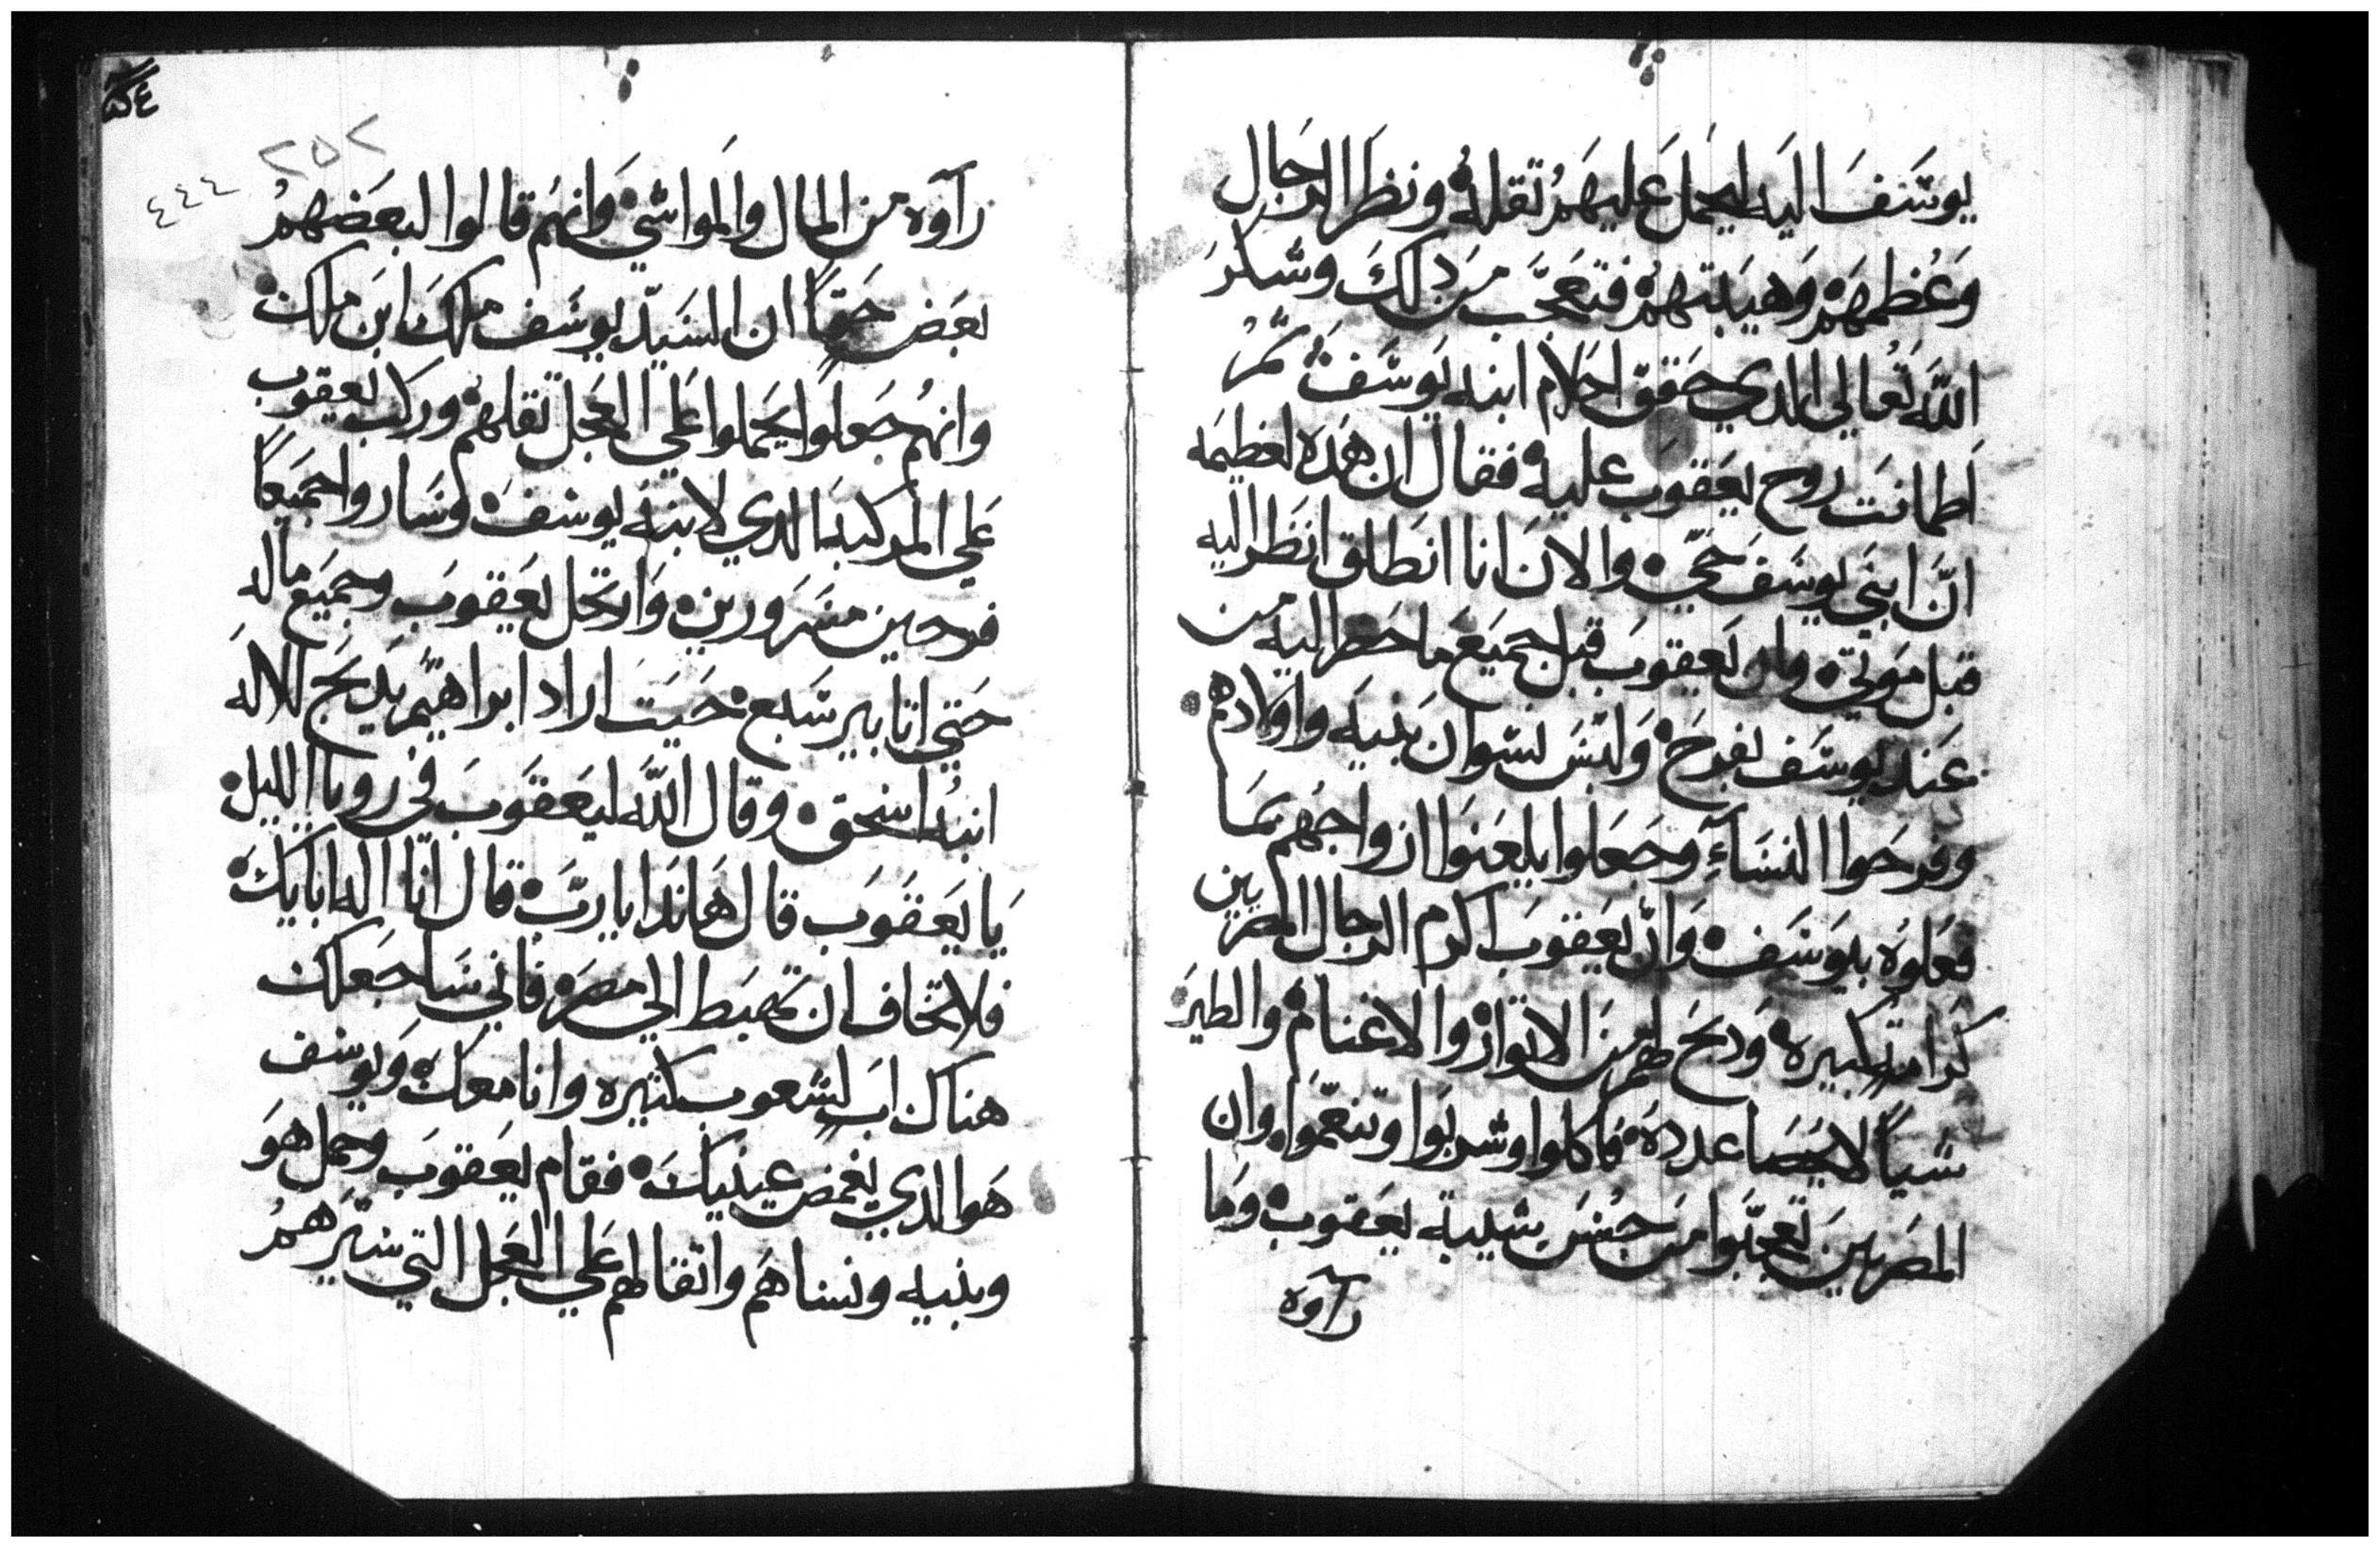 يوسف اليه ليحمل عليهم تقله ونظر الرجال
وعظمهم وهيبتهم فتعجب من دلك وشكر
الله تعالي الدي حقق احلام ابنه يوسف ثم
اطمانت روح يعقوب عليه فقال ان هده لعظيمه
ان ابني يوسف حي والان انا انطلق انظر اليه
قبل موتي وان يعقوب قبل جميع ما حضر اليه من
عند يوسف بفرح ولبس نسوان بنيه واولادهم
وفرحوا النساء وجعلوا يلعنوا ازواجهم بما
فعلوه بيوسف وان يعقوب اكرم الرجال المصريين
كرامه كبيره ودبح لهم من الاتوار والاغنام والطير
شيا لا يحصا عدده فاكلوا وشربوا وتنعموا وان
المصريين تعجبوا من حسن شيبة يعقوب وما
رآوه
٢٥٢
٤٤٤
رآوه من المال والمواشي وانهم قالوا لبعضهم
بعض حقا ان السيد يوسف ملك ابن ملك
وانهم جعلوا يحملوا علي العجل تقلهم وركب يعقوب
علي المركبه الدي لابنه يوسف وساروا جميعا
فرحين مسرورين وارتحل يعقوب وجميع ماله
حتي اتا بير سبع حيت اراد ابراهيم يدبح للاله
ابنه اسحق وقال الله ليعقوب في رويا الليل
يا يعقوب قال هاندا يا رب قال انا اله اباييك
فلا تخاف ان تهبط الي مصر فاني ساجعلك
هناك اب لشعوب كثيره وانا معك ويوسف
هو الدي يغمض عينيك فقام يعقوب وحمل هو
وبنيه ونساهم واتقالهم علي العجل التي سيرهم